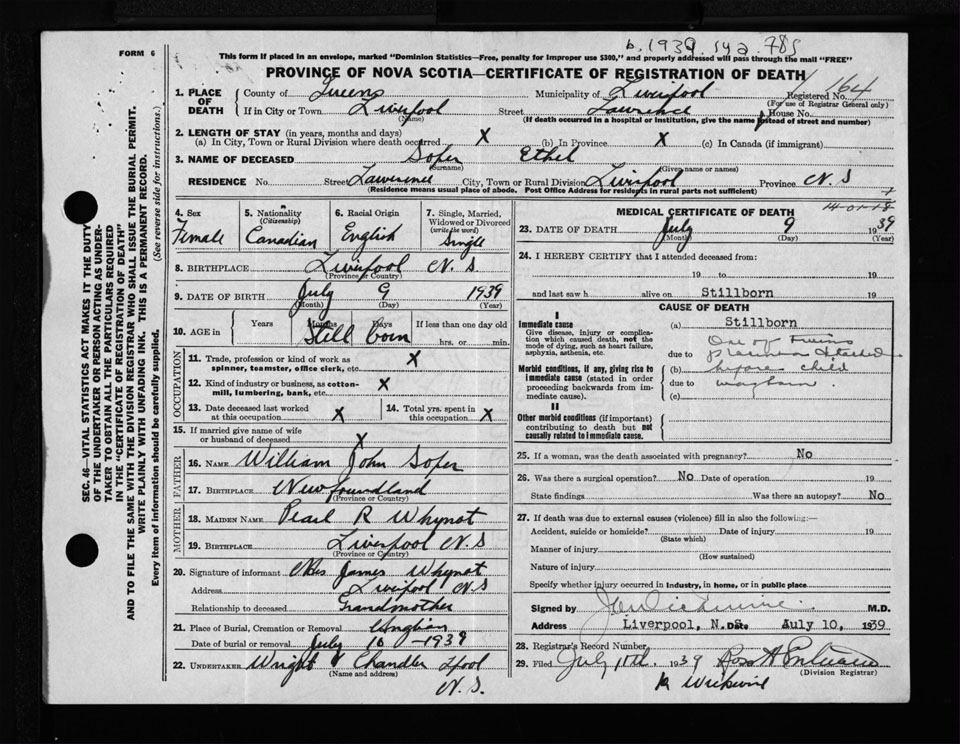 b. 1939. sy a. 785
FORM 6
This form if placed in an envelope, marked "Dominion Statistics—Free, penalty for improper use $300," and properly addressed will pass through the mail "FREE"
PROVINCE OF NOVA SCOTIA—CERTIFICATE OF REGISTRATION OF DEATH
164
1. PLACE OF DEATH
County of Queens Municipality of Liverpool Registered No.
(For use of Registrar General only)
If in City or Town Liverpool Street Lawrence House No.
(Name) (If death occurred in a hospital or institution, give the name instead of street and number)
2. LENGTH OF STAY (in years, months and days)
(a) In City, Town or Rural Division where death occurred X (b) In Province X (c) In Canada (if immigrant)
3. NAME OF DECEASED Soper Ethel
(Surname) (Given name or names)
RESIDENCE No. Street Lawerence City, Town or Rural Division Liverpool Province N.S
(Residence means usual place of abode. Post Office Address for residents in rural parts not sufficient)
4. Sex Female
5. Nationality (Citizenship) Canadian
6. Racial Origin English
7. Single, Married, Widowed or Divorced (write the word) Single
8. BIRTHPLACE Liverpool N.S.
(Province or Country)
9. DATE OF BIRTH July 9 1939
(Month) (Day) (Year)
10. AGE in Years Months Days If less than one day old
Still born hrs. or min.
OCCUPATION
11. Trade, profession or kind of work as spinner, teamster, office clerk, etc. X
12. Kind of industry or business, as cotton-mill, lumbering, bank, etc. X
13. Date deceased last worked at this occupation X
14. Total yrs. spent in this occupation X
15. If married give name of wife or husband of deceased X
FATHER
16. NAME William John Soper
17. BIRTHPLACE Newfoundland
(Province or Country)
MOTHER
18. MAIDEN NAME Pearl R Whynot
19. BIRTHPLACE Liverpool N.S
(Province or Country)
20. Signature of informant Mrs James Whynot
Address Liverpool N.S
Relationship to deceased Grandmother
21. Place of Burial, Cremation or Removal Anglian
Date of burial or removal July 10 - 1939
22. UNDERTAKER Wright Chandler L'pool
(Name and address) N.S.
MEDICAL CERTIFICATE OF DEATH
14-01-18
23. DATE OF DEATH July 9 1939
(Month) (Day) (Year)
24. I HEREBY CERTIFY that I attended deceased from:
19 to 19
and last saw h alive on Stillborn 19
CAUSE OF DEATH
I
Immediate cause
Give disease, injury or complication which caused death, not the mode of dying, such as heart failure, asphyxia, asthenia, etc.
(a) Stillborn
One of twins
due to placenta detached
Morbid conditions, if any, giving rise to immediate cause (stated in order proceeding backwards from immediate cause).
(b) before child
due to was born.
(c)
II
Other morbid conditions (if important) contributing to death but not causally related to immediate cause.
25. If a woman, was the death associated with pregnancy? No
26. Was there a surgical operation? No Date of operation 19
State findings Was there an autopsy? No
27. If death was due to external causes (violence) fill in also the following:—
Accident, suicide or homicide? Date of injury 19
(State which)
Manner of injury
(How sustained)
Nature of injury
Specify whether injury occurred in industry, in home, or in public place
Signed by M.D.
Address Liverpool, N.S. Date July 10, 1939
28. Registrar's Record Number
29. Filed July 11th. 1939
(Division Registrar)
SEC. 46—VITAL STATISTICS ACT MAKES IT THE DUTY
OF THE UNDERTAKER OR PERSON ACTING AS UNDERTAKER TO OBTAIN ALL THE PARTICULARS REQUIRED
IN THE "CERTIFICATE OF REGISTRATION OF DEATH"
AND TO FILE THE SAME WITH THE DIVISION REGISTRAR WHO SHALL ISSUE THE BURIAL PERMIT.
WRITE PLAINLY WITH UNFADING INK. THIS IS A PERMANENT RECORD.
Every item of information should be carefully supplied. (See reverse side for instructions.)